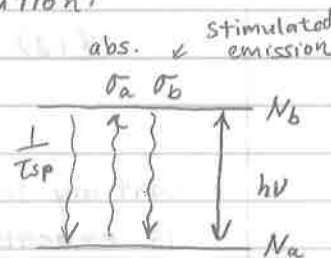 stimulated
abs. ↙ emission
σa σb
Nb
1/τsp
hν
Na